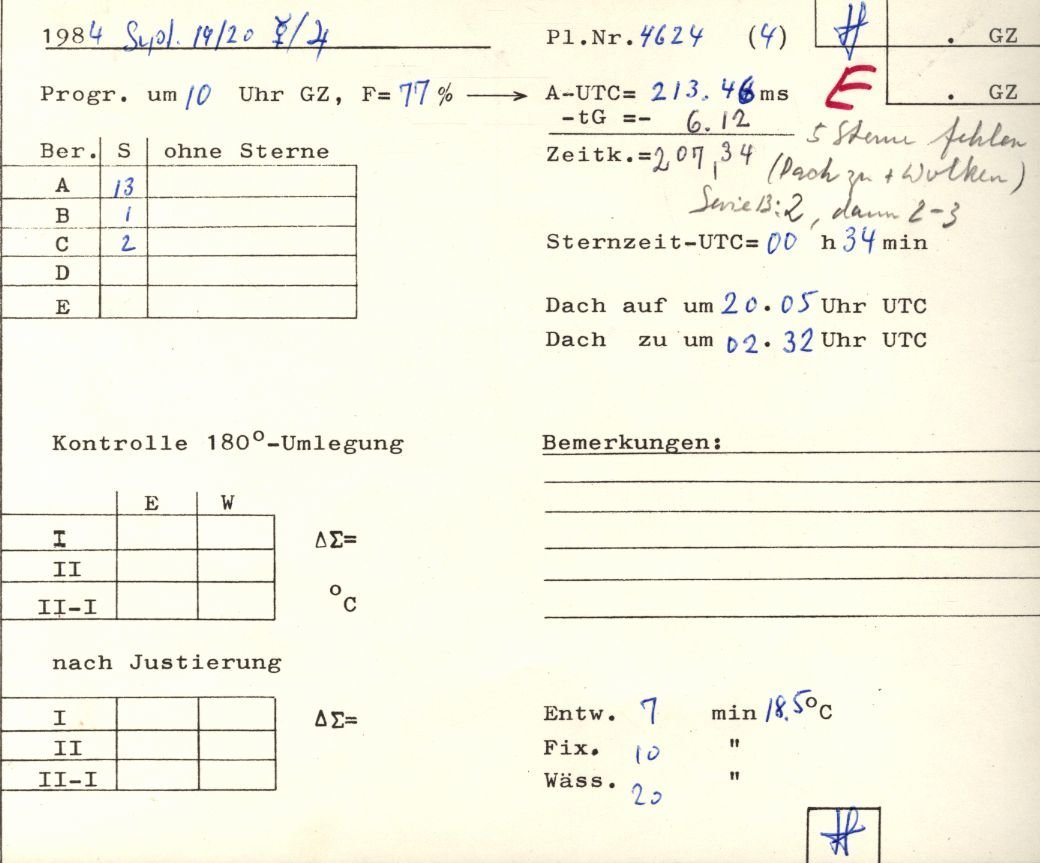 1984 Sept. 19/20 ☿/♃
Pl.Nr. 4624 (4)
. GZ
Progr. um 10 Uhr GZ, F= 77 % → A-UTC= 213.46 ms
E
. GZ
-tG =- 6.12
5 Sterne fehlen
Zeitk.= 207,34
(Dach zu + Wolken)
Serie B: 2, dann 2-3
Ber. S ohne Sterne
A 13
B 1
C 2
D
E
Sternzeit-UTC= 00 h 34 min
Dach auf um 20.05 Uhr UTC
Dach zu um 02.32 Uhr UTC
Kontrolle 180°-Umlegung
E W
I ΔΣ=
II
II-I °C
Bemerkungen:
nach Justierung
I ΔΣ=
II
II-I
Entw. 7 min 18.5°C
Fix. 10 "
Wäss. 20 "